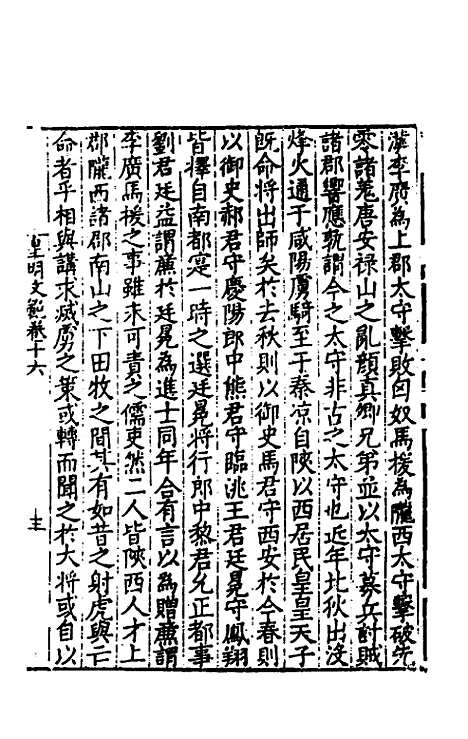 漢李廣為上郡太守擊敗匈奴馬援為隴西太守擊破先
零諸羌唐安祿山之亂顏真卿兄弟並以太守募兵討賊
諸郡響應孰謂今之太守非古之太守也近年北狄出沒
烽火通于咸陽虜騎至于秦凉自陝以西居民皇皇天子
既命將出師矣於去秋則以御史馬君守西安於今春則
以御史郝君守慶陽郎中熊君守臨洮王君廷冕守鳳翔
皆擇自南都寔一時之選廷冕將行郎中黎君允正都事
劉君廷益謂蕉於廷冕為進士同年合有言以為贈蕉謂
李廣馬援之事雖未可責之儒吏然二人皆陝西人才上
郡隴西諸郡南山之下田牧之間其有如昔之射虎與亡
命者乎相與講求滅虜之策或轉而聞之於大將或自以
皇明文範卷十六